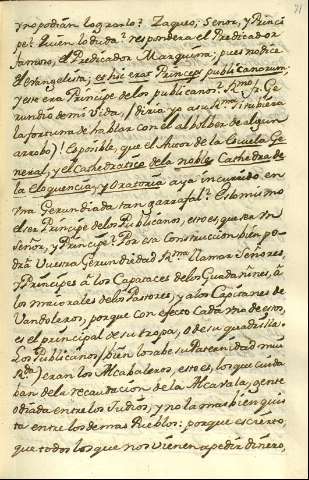 21
y no podian lograrlo? Zaqueo, Señor, y Princi
pe? Quien lo duda? responderá el Predicador
famoso, el Predicador Marquina; pues no dice
el evangelista; es hic erat Princeps publicanorum;
y este era Principe de los publicanos? Rmo. Fr. Ge
rundio de mi Vida, (diria yo a su Rma. si tubiera
la fortuna de hablar con él al bolber de algun
arrobo)! Es posible, que el Autor de la Escuela Ge
neral, y el Cathedratico de la noble Cathedra de
la Eloquencia, y Oratoria aya incurrido en
una Gerundiada tan garrafal? Esto mismo
el ser Principe de los Publicanos, esto es, que ser un
Señor, y Principe? Por esa Construccion bien po-
drá Vuestra Gerundiedad Rma. llamar Señores,
y Principes á los Capataces de los Guadañines, á
los maiorales de los Pastores, y a los Capitanes de
Vandoleros, porque con efecto cada uno de estos,
es el principal de su tropa, o de su quadrilla.
Los Publicanos (bien lo sabe su Paternidad mui
Rda.) eran los Alcabaleros, esto es, los que cuida
ban de la recaudacion de la Alcavala, gente
odiada entre los Judios, y no la mas bien quis
ta entre los demas Pueblos: porque es cierto,
que todos los que nos vienen a pedir dinero,